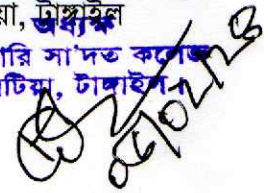 য়া, টাঙ্গাইল
অধ্যক্ষ
রি সা'দত কলেজ
টিয়া, টাঙ্গাইল।